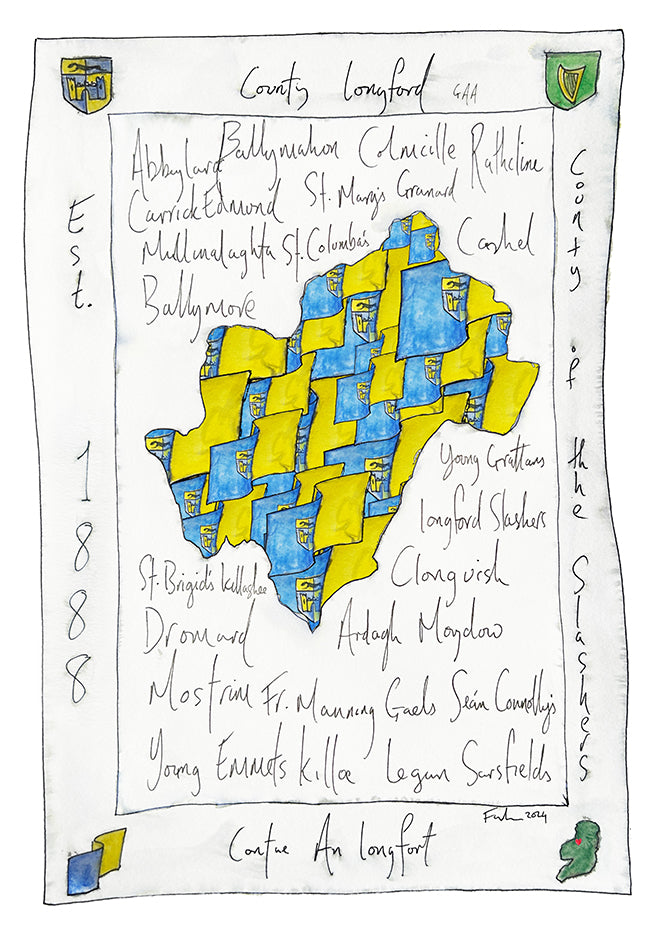 County Longford GAA
Abbeylara Ballymahon Colmcille Rathcline
Carrickedmond St. Mary's Granard
Mullinalaghta St. Columba's Cashel
Ballymore
Est. 1888
County of the Slashers
Young Grattans
Longford Slashers
St. Brigid's Killashee Clonguish
Dromard Ardagh Moydow
Mostrim Fr. Manning Gaels Seán Connolly's
Young Emmets Killoe Legan Sarsfields
2024
Contae An Longfort